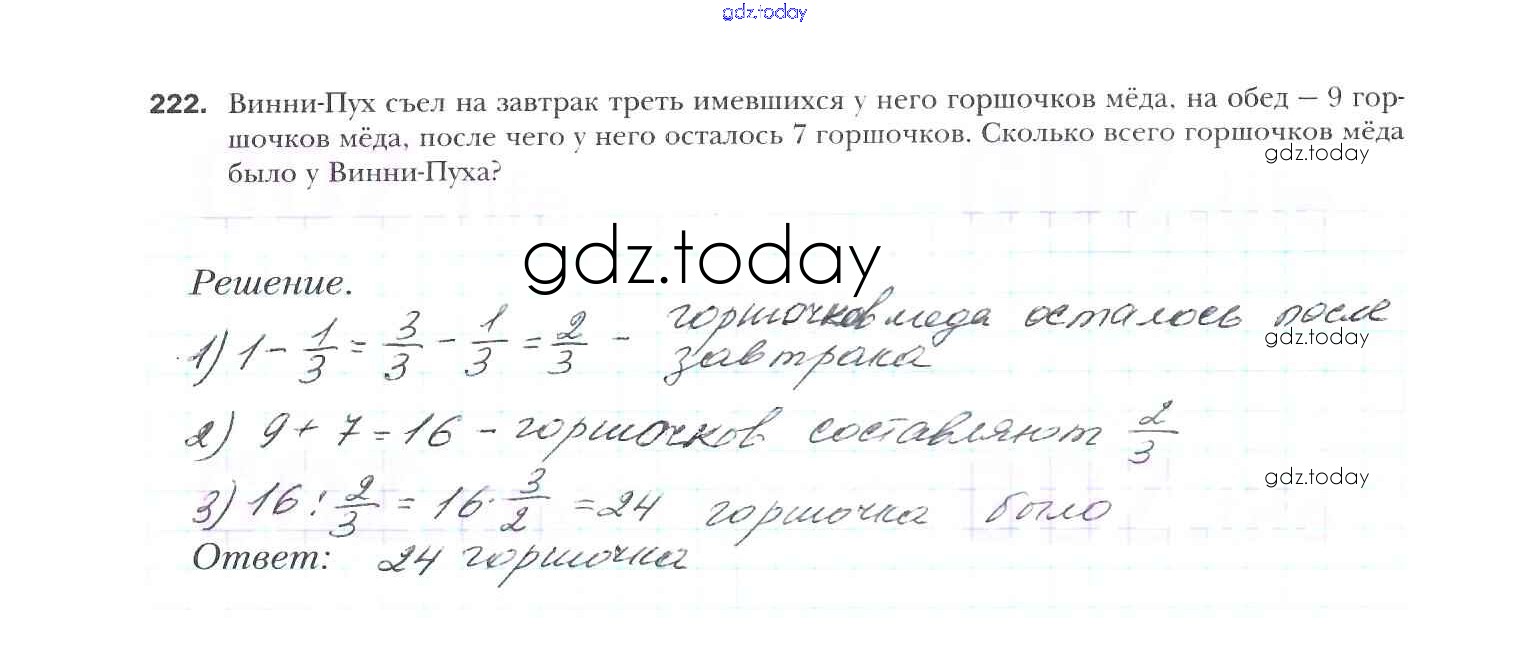 gdz.today
222. Винни-Пух съел на завтрак треть имевшихся у него горшочков мёда, на обед — 9 гор-
шочков мёда, после чего у него осталось 7 горшочков. Сколько всего горшочков мёда
gdz.today
было у Винни-Пуха?
gdz.today
Решение.
1) 1 - 1/3 = 3/3 - 1/3 = 2/3 - горшочков меда осталось после
gdz.today
завтрака
2) 9 + 7 = 16 - горшочков составляют 2/3
gdz.today
3) 16 : 2/3 = 16 · 3/2 = 24 горшочка было
Ответ: 24 горшочка